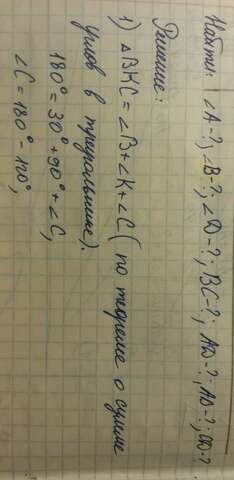 Найти: ∠A-?; ∠B-?; ∠D-?; BC-?; AD-?; AB-?; CD-?.
Решение:
1) △BKC = ∠B+∠K+∠C (по теореме о сумме
углов в треугольнике).
180° = 30° + 90° + ∠C,
∠C = 180° - 120°,